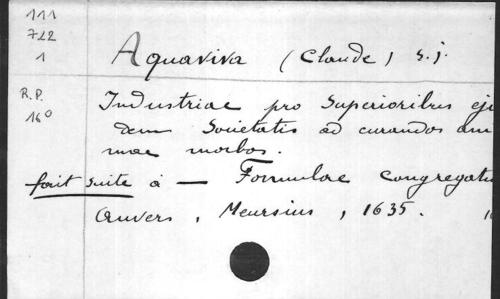 111
722
1
Aquaviva (Claude) s.j.
R.P.
16°
Industriae pro Superioribus eju
dem Societatis ad curandos ani
mae morbos.
fait suite à — Formulae Congregatio
Anvers, Meursius, 1635.